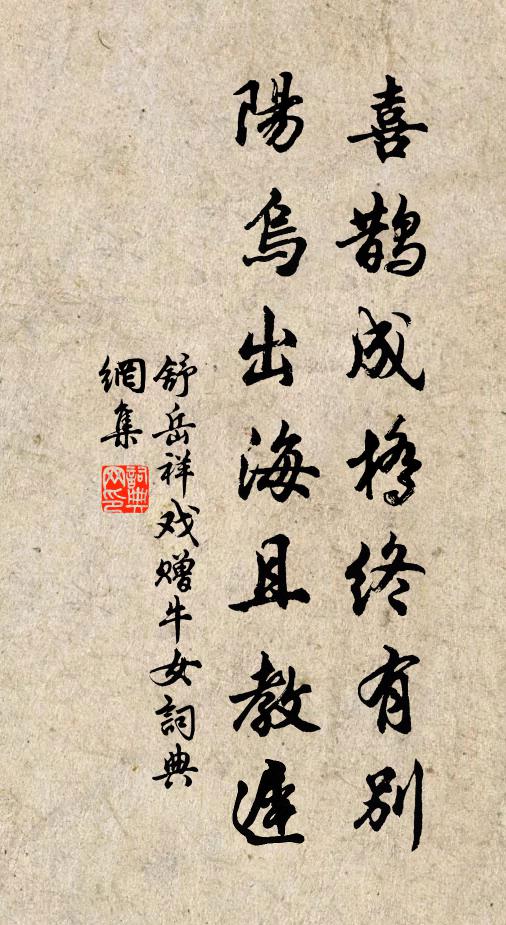 喜鵲成橋終有別
陽烏出海且教遲
舒岳祥戏赠牛女詞典
網集
詞典
网印